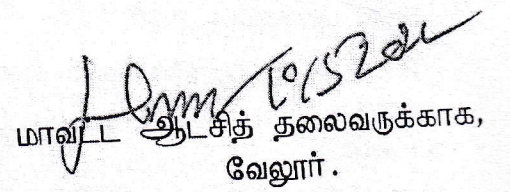 மாவட்ட ஆட்சித் தலைவருக்காக,
வேலூர்.